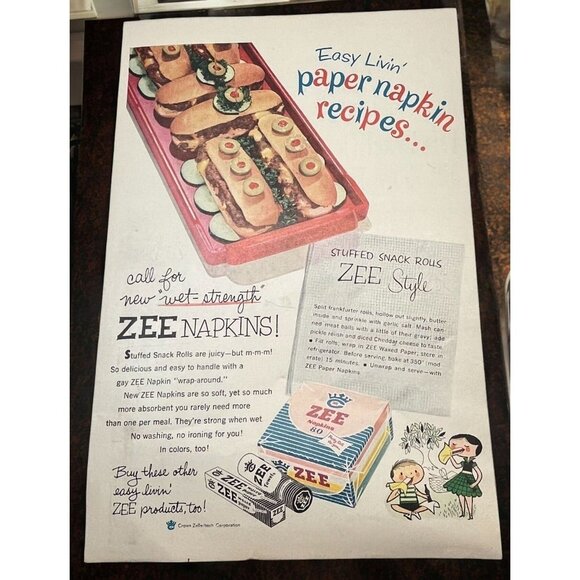 Easy Livin'
paper napkin
recipes...
STUFFED SNACK ROLLS
ZEE Style
Split frankfurter rolls, hollow out slightly, butter
inside and sprinkle with garlic salt. Mash can-
ned meat balls with a little of their gravy; add
pickle relish and diced Cheddar cheese to taste.
• Fill rolls, wrap in ZEE Waxed Paper; store in
refrigerator. Before serving, bake at 350° (mod
erate) 15 minutes. • Unwrap and serve—with
ZEE Paper Napkins
call for
new "wet-strength"
ZEE NAPKINS!
Stuffed Snack Rolls are juicy—but m-m-m!
So delicious and easy to handle with a
gay ZEE Napkin "wrap-around."
New ZEE Napkins are so soft, yet so much
more absorbent you rarely need more
than one per meal. They're strong when wet
No washing, no ironing for you!
In colors, too!
Buy these other
easy livin'
ZEE products, too!
ZEE
Napkins
80
ZEE
Towels
ZEE
ZEE
ZEE
Crown Zellerbach Corporation